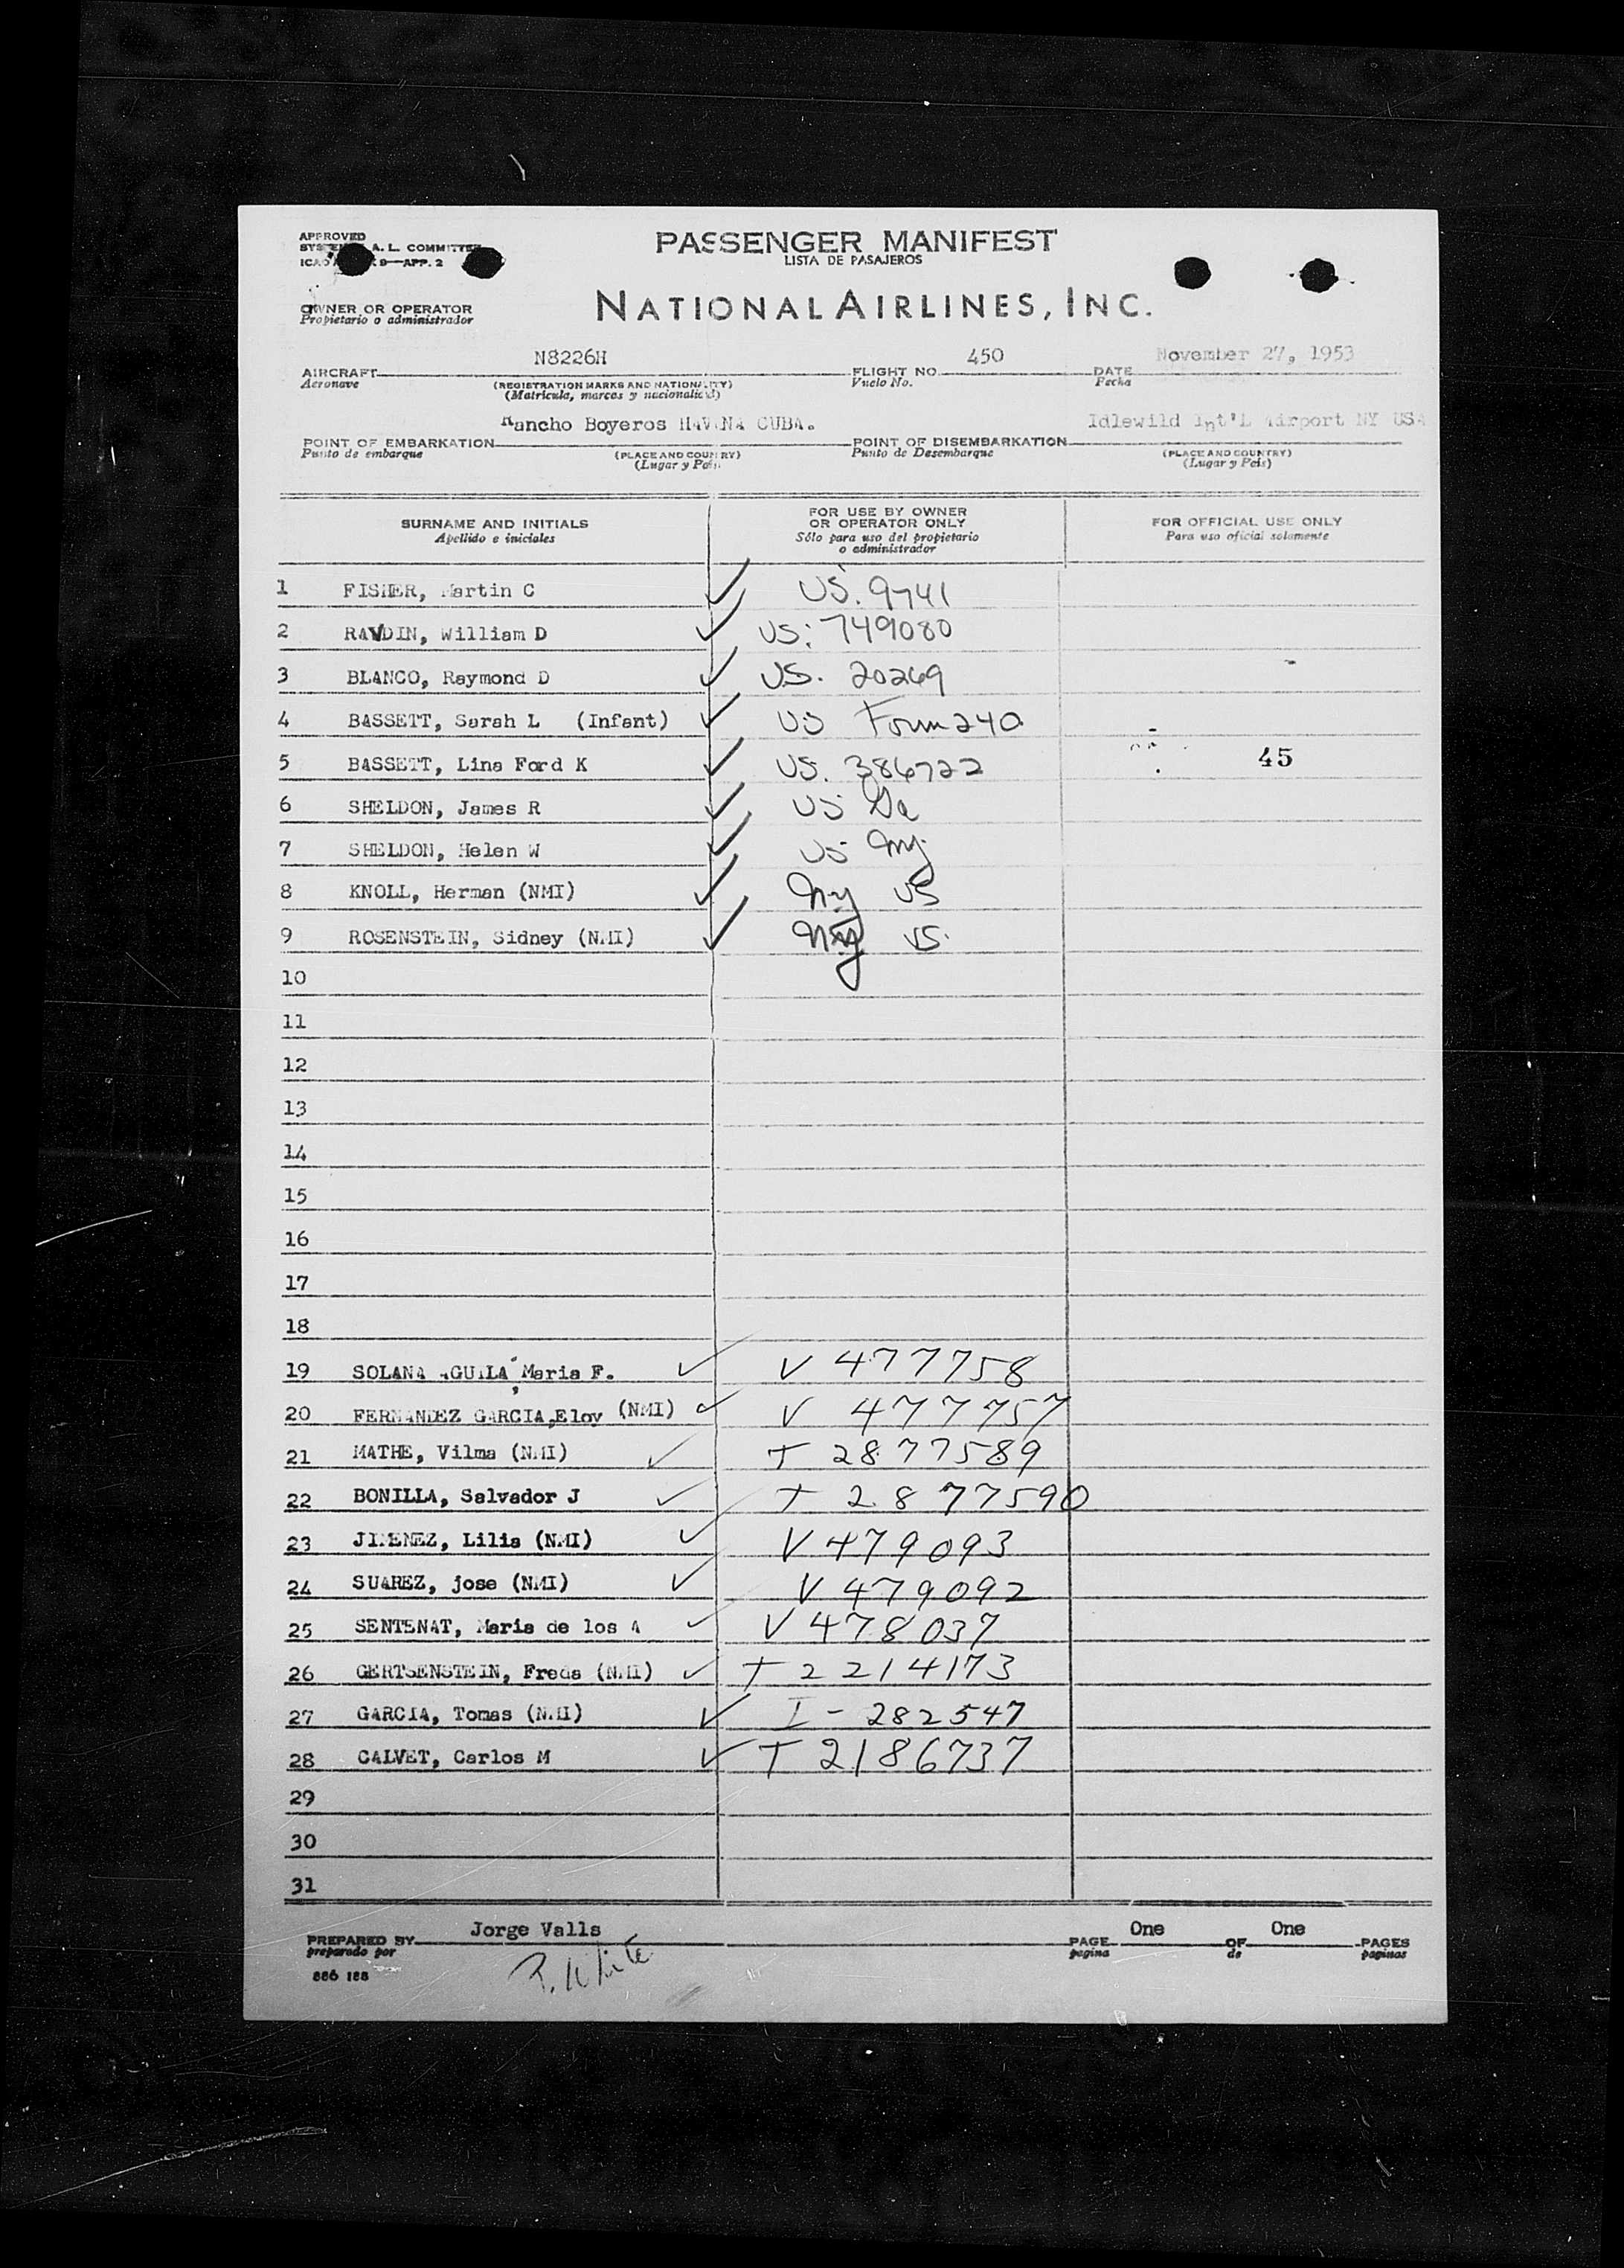 APPROVED
PASSENGER MANIFEST
A. L. COMMITTEE
LISTA DE PASAJEROS
9—APP. 2
OWNER OR OPERATOR
Propietario o administrador
NATIONAL AIRLINES, INC.
N8226H 450 November 27, 1953
AIRCRAFT FLIGHT NO. DATE
Aeronave (REGISTRATION MARKS AND NATIONALITY) Vuelo No. Fecha
(Matricula, marcas y nacionalidad)
Rancho Boyeros HAVANA CUBA. Idlewild Int'L Airport NY USA
POINT OF EMBARKATION POINT OF DISEMBARKATION
Punto de embarque (PLACE AND COUNTRY) Punto de Desembarque (PLACE AND COUNTRY)
(Lugar y Pais) (Lugar y Peis)
SURNAME AND INITIALS
Apellido e iniciales
FOR USE BY OWNER
OR OPERATOR ONLY
Sólo para uso del propietario
o administrador
FOR OFFICIAL USE ONLY
Para uso oficial solamente
1 FISHER, Martin C US. 9741
2 RAVDIN, William D US: 749080
3 BLANCO, Raymond D US. 20269
4 BASSETT, Sarah L (Infant) US Form 240
5 BASSETT, Lina Ford K US. 386722 45
6 SHELDON, James R US Ga
7 SHELDON, Helen W US Ny
8 KNOLL, Herman (NMI) Ny US
9 ROSENSTEIN, Sidney (NMI) Ny US.
10
11
12
13
14
15
16
17
18
19 SOLANA AGUILA, Maria F. V 477758
20 FERNANDEZ GARCIA,Eloy (NMI) V 477757
21 MATHE, Vilma (NMI) T 2877589
22 BONILLA, Salvador J T 2877590
23 JIMENEZ, Lilia (NMI) V 479093
24 SUAREZ, jose (NMI) V 479092
25 SENTENAT, Maria de los A V 478037
26 GERTSENSTEIN, Freda (NMI) T 2214173
27 GARCIA, Tomas (NMI) I - 282547
28 CALVET, Carlos M T 2186737
29
30
31
Jorge Valls One One
PREPARED BY PAGE OF PAGES
preparado por pagina de paginas
886 188 P. White